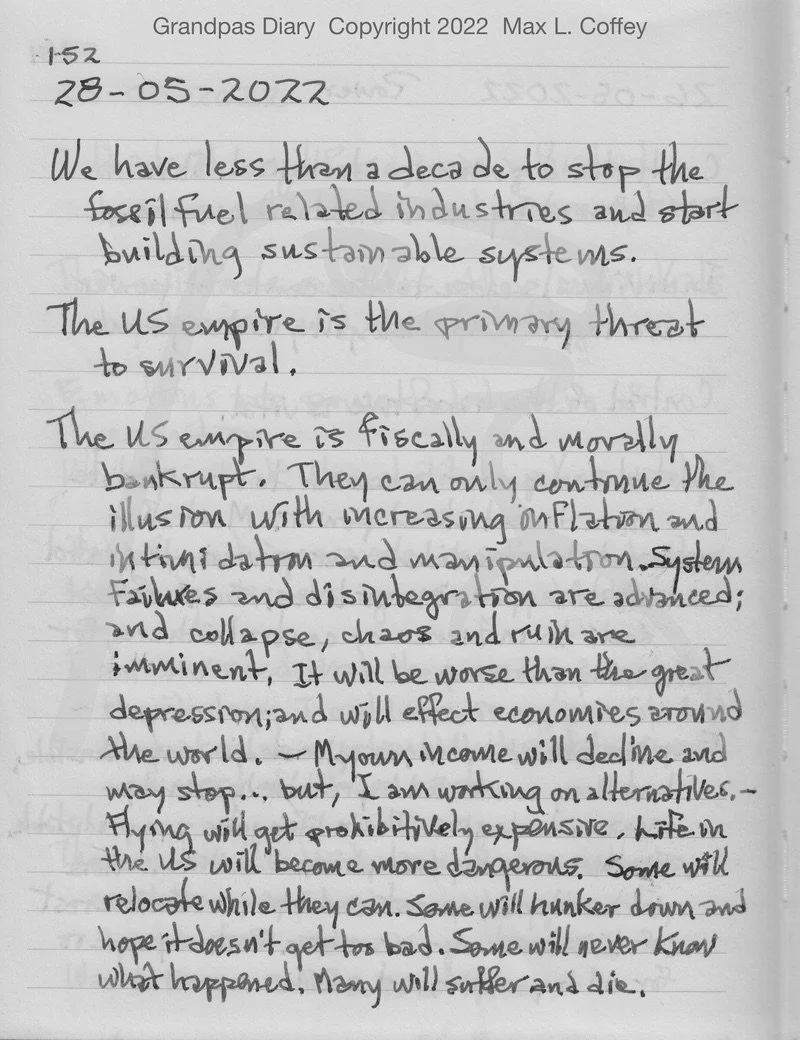 Grandpas Diary Copyright 2022 Max L. Coffey
152
28-05-2022
We have less than a decade to stop the
fossil fuel related industries and start
building sustainable systems.
The US empire is the primary threat
to survival.
The US empire is fiscally and morally
bankrupt. They can only continue the
illusion with increasing inflation and
intimidation and manipulation. System
failures and disintegration are advanced;
and collapse, chaos and ruin are
imminent. It will be worse than the great
depression; and will effect economies around
the world. — My own income will decline and
may stop... but, I am working on alternatives. —
Flying will get prohibitively expensive. Life in
the US will become more dangerous. Some will
relocate while they can. Some will hunker down and
hope it doesn't get too bad. Some will never know
what happened. Many will suffer and die.